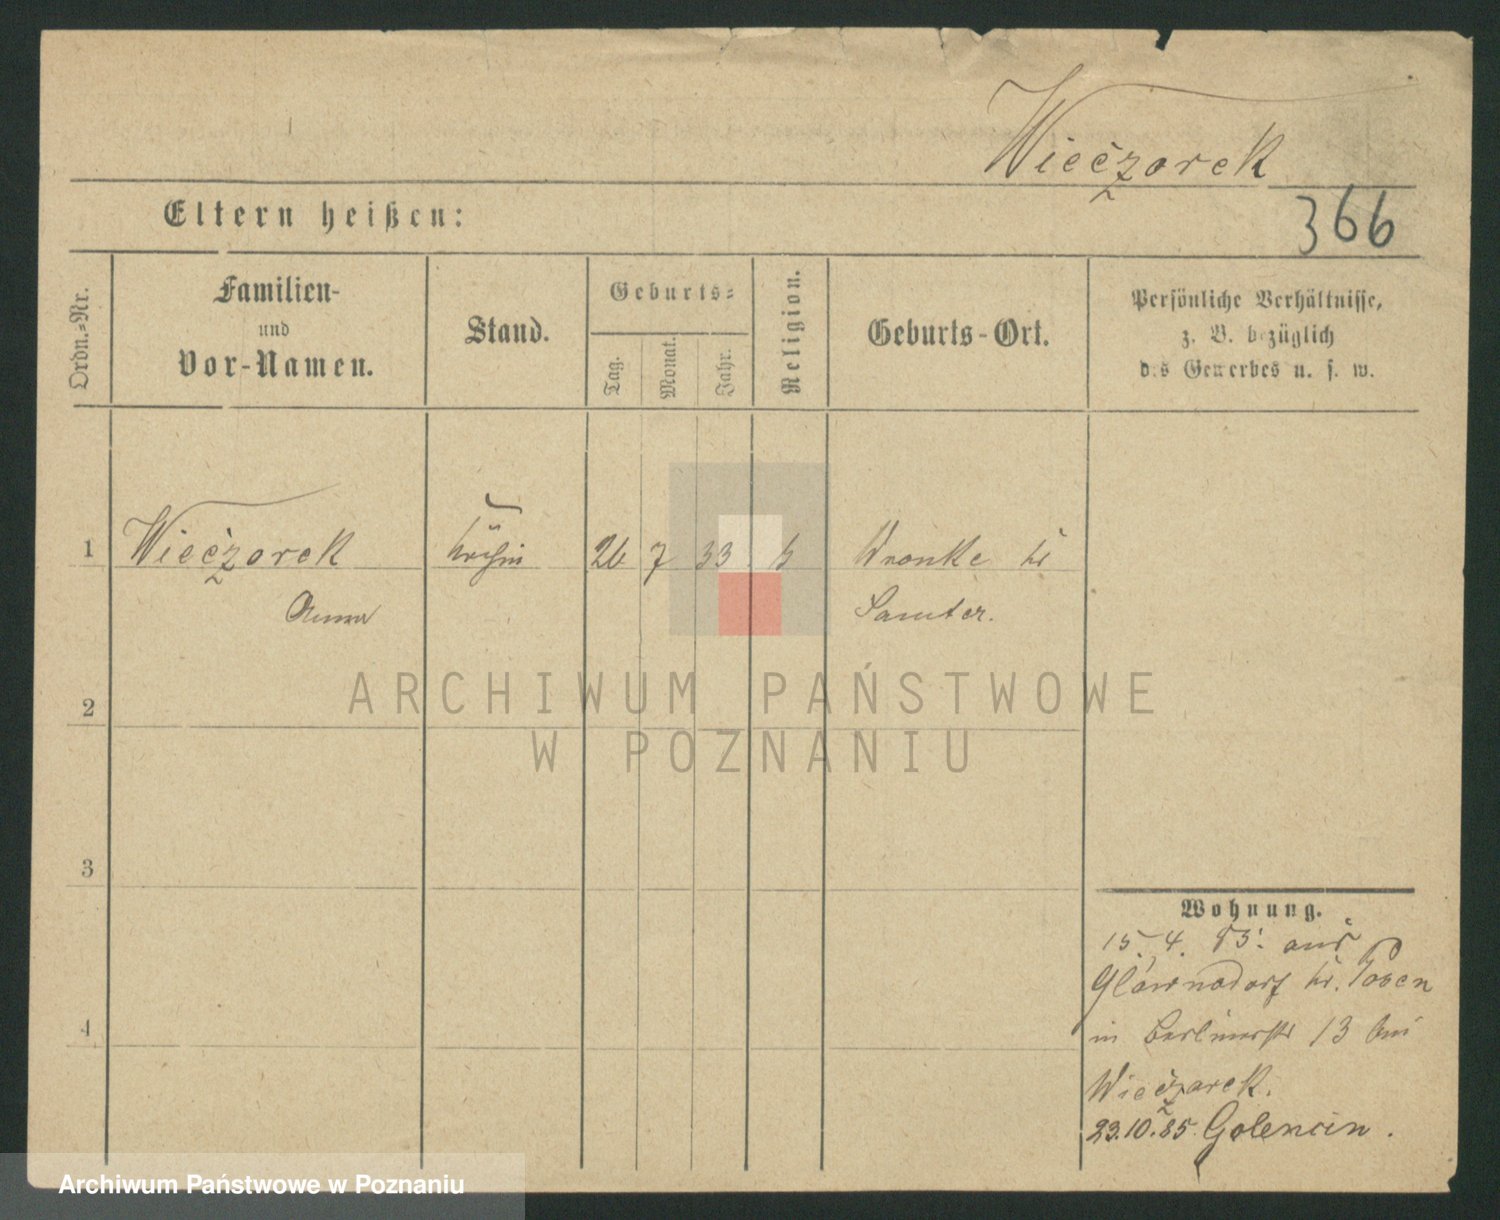 Wieczorek
366
Eltern heißen:
Ordn.-Nr.
Familien-
und
Vor-Namen.
Stand.
Geburts-
Tag.
Monat.
Jahr.
Religion.
Geburts-Ort.
Persönliche Verhältnisse,
z. B. bezüglich
des Gewerbes u. s. w.
1
Wieczorek
26 7 33
Wronke Kr
Anna
Samter.
2
3
4
Wohnung.
15. 4. 83. aus
Glównodorf Kr. Posen
in Berlinerstr 13 bei
Wieczorek.
23.10.85. Golencin.
ARCHIWUM PAŃSTWOWE
W POZNANIU
Archiwum Państwowe w Poznaniu